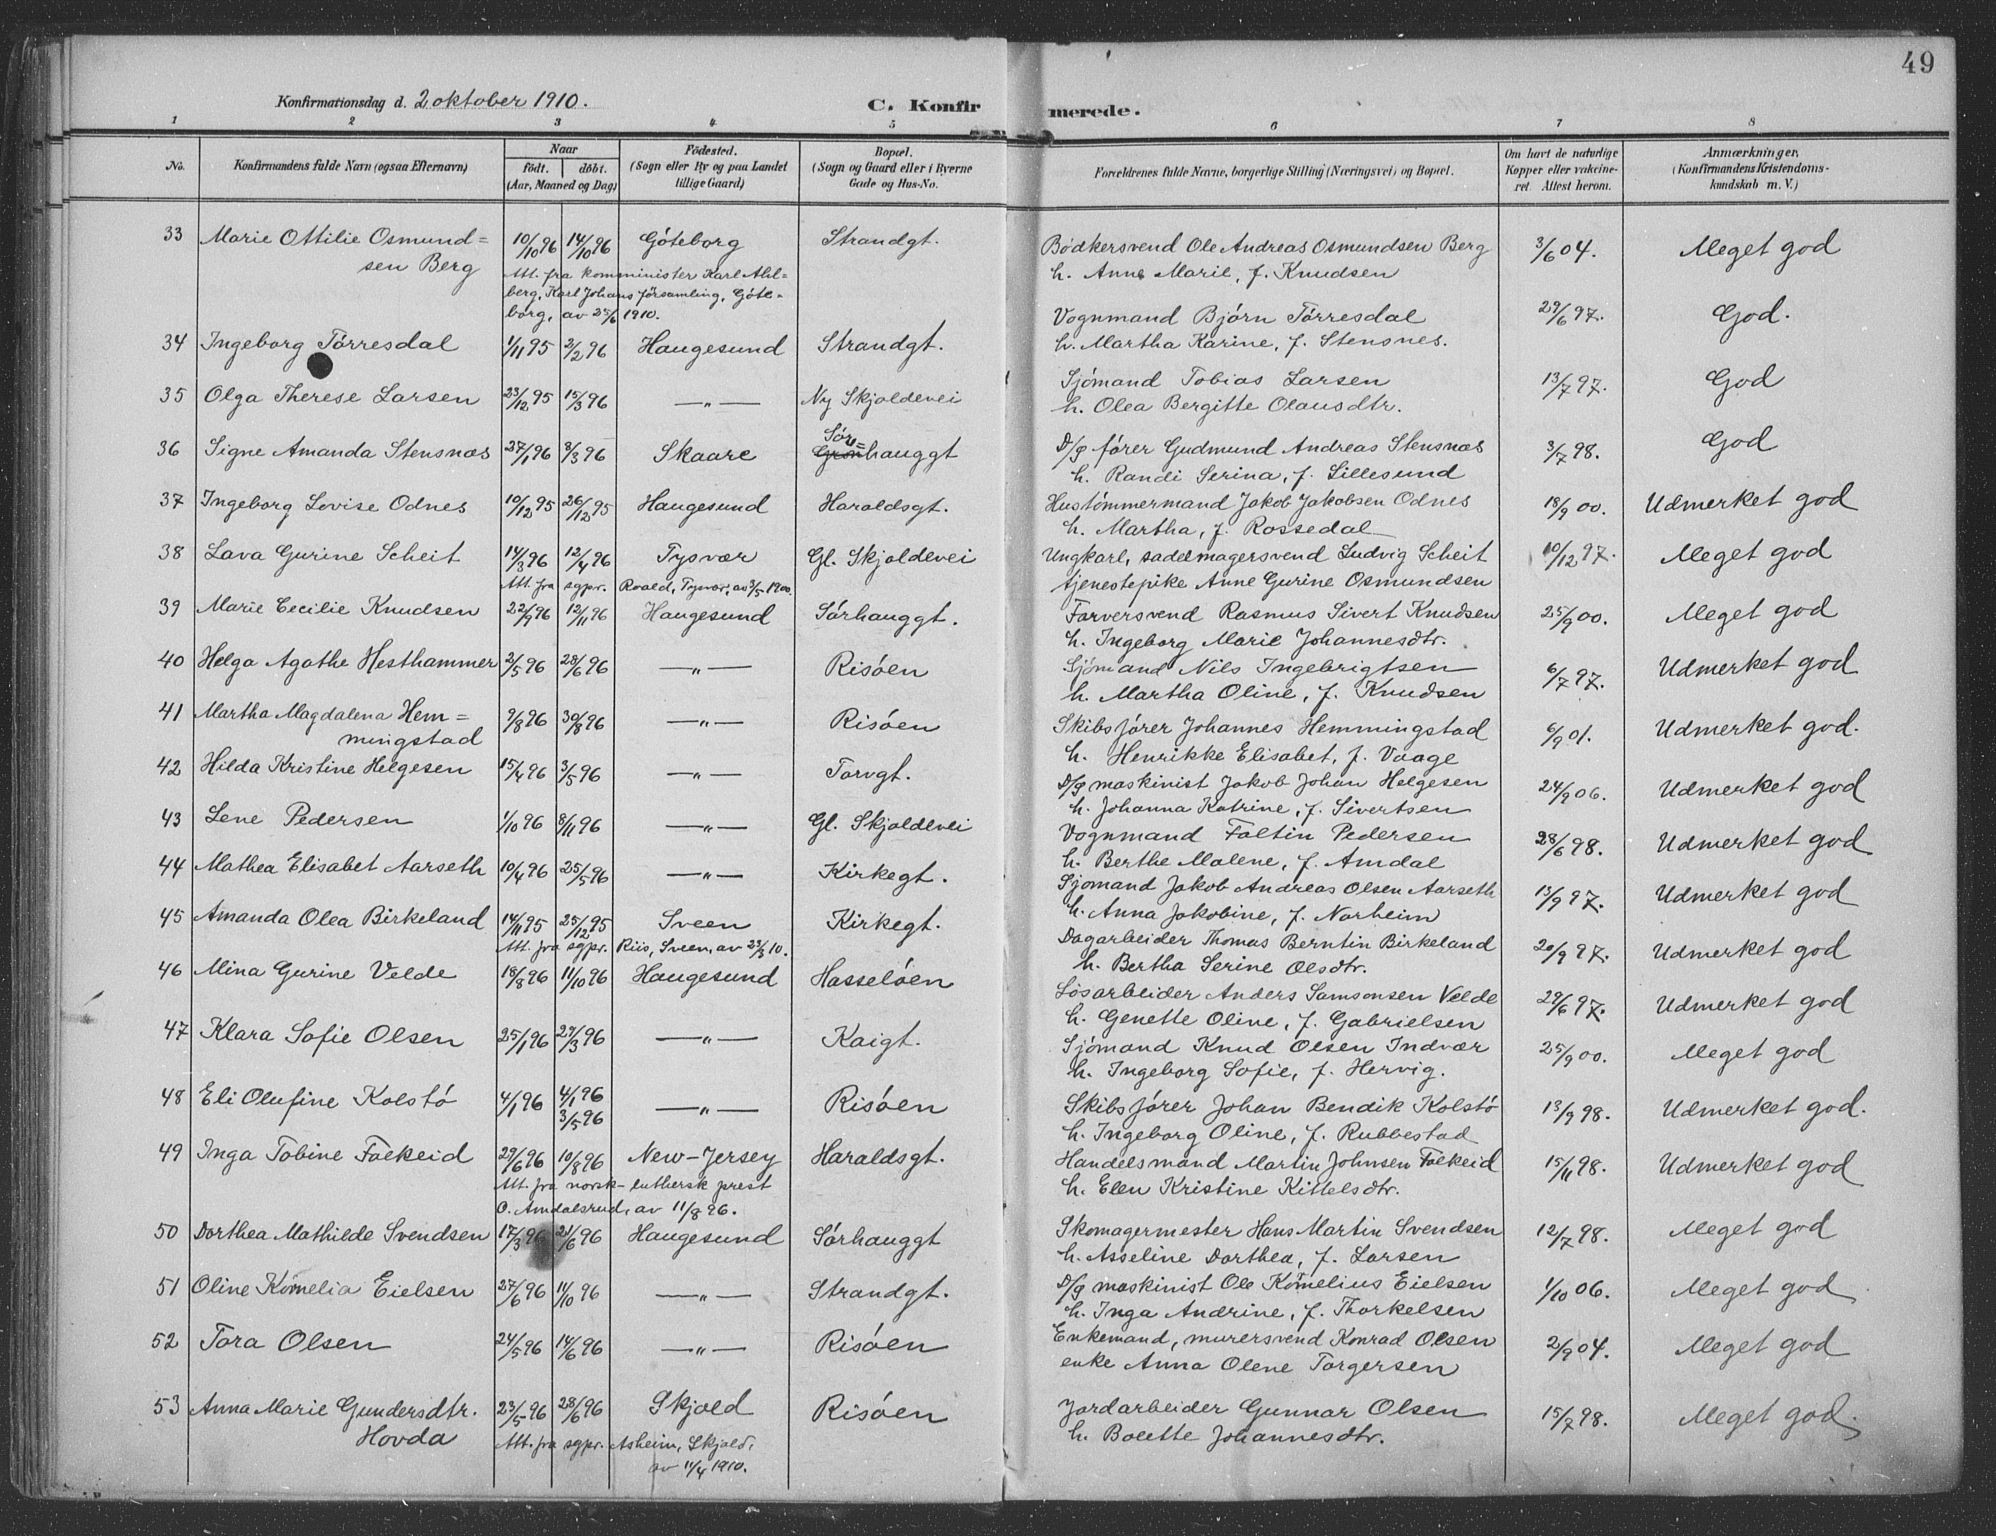 49
Konfirmationsdag d. 2 oktober 1910. C. Konfirmerede.
1 2 3 4 5 6 7 8
No. Konfirmandens fulde Navn (ogsaa Efternavn) Naar födt. döbt. (Aar, Maaned og Dag) Födested. (Sogn eller By og paa Landet tillige Gaard) Bopæl. (Sogn og Gaard eller i Byerne Gade og Hus-No. Forældrenes fulde Navne, borgerlige Stilling (Næringsvei) og Bopæl. Om havt de naturlige Kopper eller vakcineret. Attest herom. Anmærkninger, (Konfirmandens Kristendomskundskab m. V.)
33 Marie Ottilie Osmund= 10/10 96 14/10 96 Göteborg Strandgt. Bödkersvend Ole Andreas Osmundsen Berg 3/6 04. Meget god
sen Berg Att. fra komminister Karl Ahl= h. Anne Marie, f. Knudsen
berg, Karl Johans församling, Göte=
borg, av 25/6 1910.
34 Ingeborg Törresdal 1/11 95 2/2 96 Haugesund Strandgt. Vognmand Björn Törresdal 29/6 97. God.
h. Martha Karine, f. Stensnes.
35 Olga Therese Larsen 23/12 95 15/3 96 —„— Ny Skjoldevei Sjömand Tobias Larsen 13/7 97. God
h. Olea Bergitte Olausdtr.
36 Signe Amanda Stensnæs 27/1 96 8/3 96 Skaare Sör=hauggt D/g förer Gudmund Andreas Stensnæs 3/7 98. God
h. Randi Serina, f. Lillesund
37 Ingeborg Lovise Odnes 10/12 95 26/12 95 Haugesund Haraldsgt. Hustömmermand Jakob Jakobsen Odnes 18/9 00. Udmerket god
h. Martha, f. Rossedal
38 Lava Gurine Scheit 14/3 96 12/4 96 Tysvær Gl. Skjoldevei Ungkarl, sadelmagersvend Ludvig Scheit 10/12 97. Meget god
Att. fra sgpr. Roald, Tysvær, av 3/5 1900. tjenestepike Anne Gurine Osmundsen
39 Marie Cecilie Knudsen 22/9 96 12/11 96 Haugesund Sörhauggt. Farversvend Rasmus Sivert Knudsen 25/9 00. Meget god
h. Ingeborg Marie Johannesdtr.
40 Helga Agathe Hesthammer 2/5 96 28/6 96 —„— Risöen Sjömand Nils Ingebrigtsen 6/7 97. Udmerket god
h. Martha Oline, f. Knudsen
41 Martha Magdalena Hem= 9/8 96 30/8 96 —„— Risöen Skibsförer Johannes Hemmingstad 6/9 01. Udmerket god.
mingstad h. Henrikke Elisabet, f. Vaage
42 Hilda Kristine Helgesen 15/4 96 3/5 96 —„— Torvgt. D/g maskinist Jakob Johan Helgesen 24/9 06. Udmerket god
h. Johanna Katrine, f. Sivertsen
43 Lene Pedersen 1/10 96 8/11 96 —„— Gl. Skjoldevei Vognmand Foltin Pedersen 28/6 98. Udmerket god
h. Berthe Malene, f. Amdal
44 Mathea Elisabet Aarseth 10/4 96 25/5 96 —„— Kirkegt. Sjömand Jakob Andreas Olsen Aarseth 13/9 97. Udmerket god
h. Anna Jakobine, f. Norheim
45 Amanda Olea Birkeland 14/11 95 25/12 95 Sveen Kirkegt. Dagarbeider Thomas Berntin Birkeland 20/9 97. Udmerket god
Att. fra sgpr. Riis, Sveen, av 23/3 10. h. Bertha Serine Olsdtr.
46 Mina Gurine Velde 18/8 96 11/10 96 Haugesund Hasselöen Lösarbeider Anders Samsonsen Velde 29/6 97. Udmerket god
h. Genette Oline, f. Gabrielsen
47 Klara Sofie Olsen 25/1 96 29/3 96 —„— Kaigt. Sjömand Knud Olsen Indvær 25/9 00. Meget god
h. Ingeborg Sofie, f. Hervig.
48 Eli Olufine Kolstö 4/1 96 4/1 96 3/5 96 —„— Risöen Skibsförer Johan Bendik Kolstö 13/9 98. Udmerket god.
h. Ingeborg Oline, f. Rubbestad
49 Inga Tobine Falkeid 29/6 96 10/8 96 New-Jersey Haraldsgt. Handelsmand Martin Johnsen Falkeid 15/11 98. Udmerket god
Att. fra norsk-luthersk prest h. Elen Kristine Kittelsdtr.
O. Amdalsrud, av 11/8 96.
50 Dorthea Mathilde Svendsen 17/3 96 21/6 96 Haugesund Sörhauggt Skomagermester Hans Martin Svendsen 12/7 98. Meget god
h. Asseline Dorthea, f. Larsen
51 Oline Kornelia Eielsen 27/6 96 11/10 96 —„— Strandgt. D/g maskinist Ole Kornelius Eielsen 1/10 06. Meget god
h. Inga Andrine, f. Thorkelsen
52 Tora Olsen 24/5 96 14/6 96 —„— Risöen Enkemand, murersvend Konrad Olsen 2/9 04. Meget god
enke Anna Olene Torgersen
53 Anna Marie Gundersdtr. 23/5 96 28/6 96 Skjold Risöen Jordarbeider Gunnar Olsen 15/7 98. Meget god.
Hovda Att. fra sgpr. Asheim, Skjold, h. Bolette Johannesdtr.
av 11/4 1910.